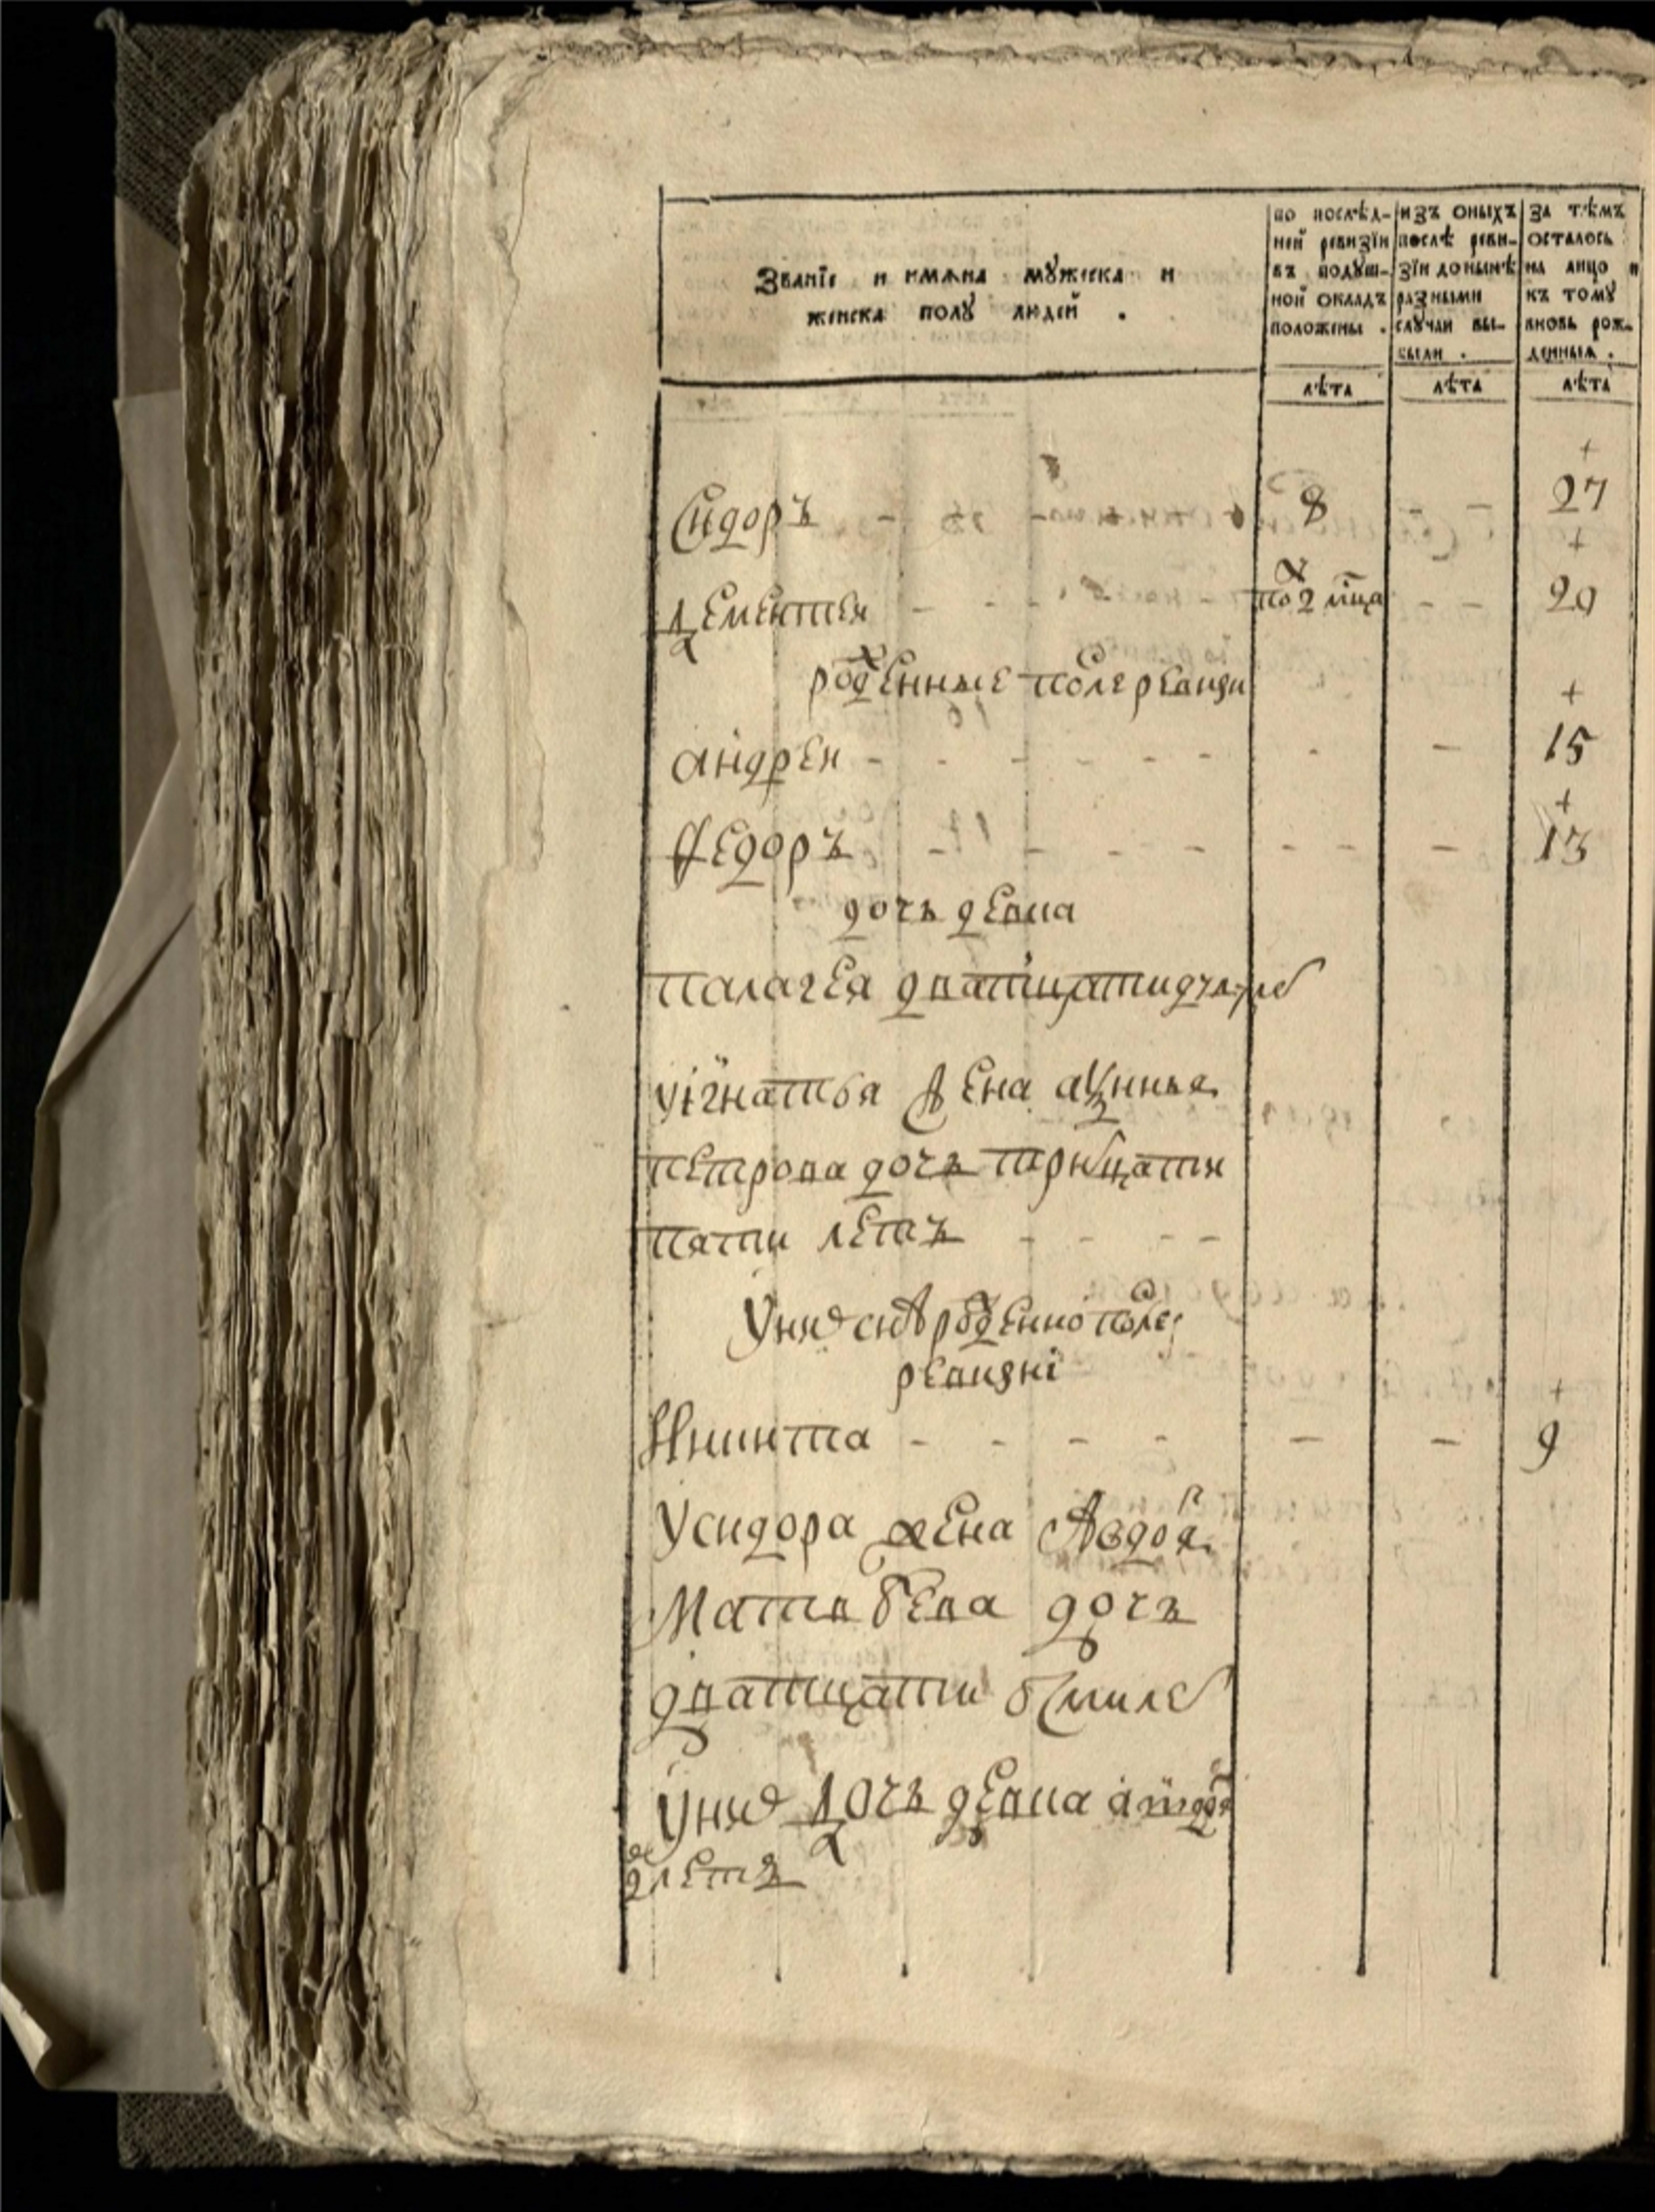 Званїе и имѧна мꙋжеска и
женска полꙋ людей .
по послѣд-
ней ревизїи
въ подꙋш-
ной окладъ
положены .
изъ оныхъ
послѣ реви-
зїи донынѣ
разными
слꙋчаи вы-
были .
за тѣмъ
осталось
на лицо и
къ томꙋ
вновь рож-
денныѧ .
лѣта лѣта лѣта
Сидоръ - 8 - - 27
Дементеи - - - пол2 мца - - 20
рожденные после ревизи
андреи - - - - - - - - 15
Федоръ - - - - - - - 13
дочь девка
палагея
уігнатья жена
петрова дочь тритцати
пяти летъ - - - -
унихъ сынъ рожденно после
ревизиі
Никита - - - - - - 9
Усидора жена Авдотя
Матвѣева дочь
дватцати
Уних дочь девка
летъ